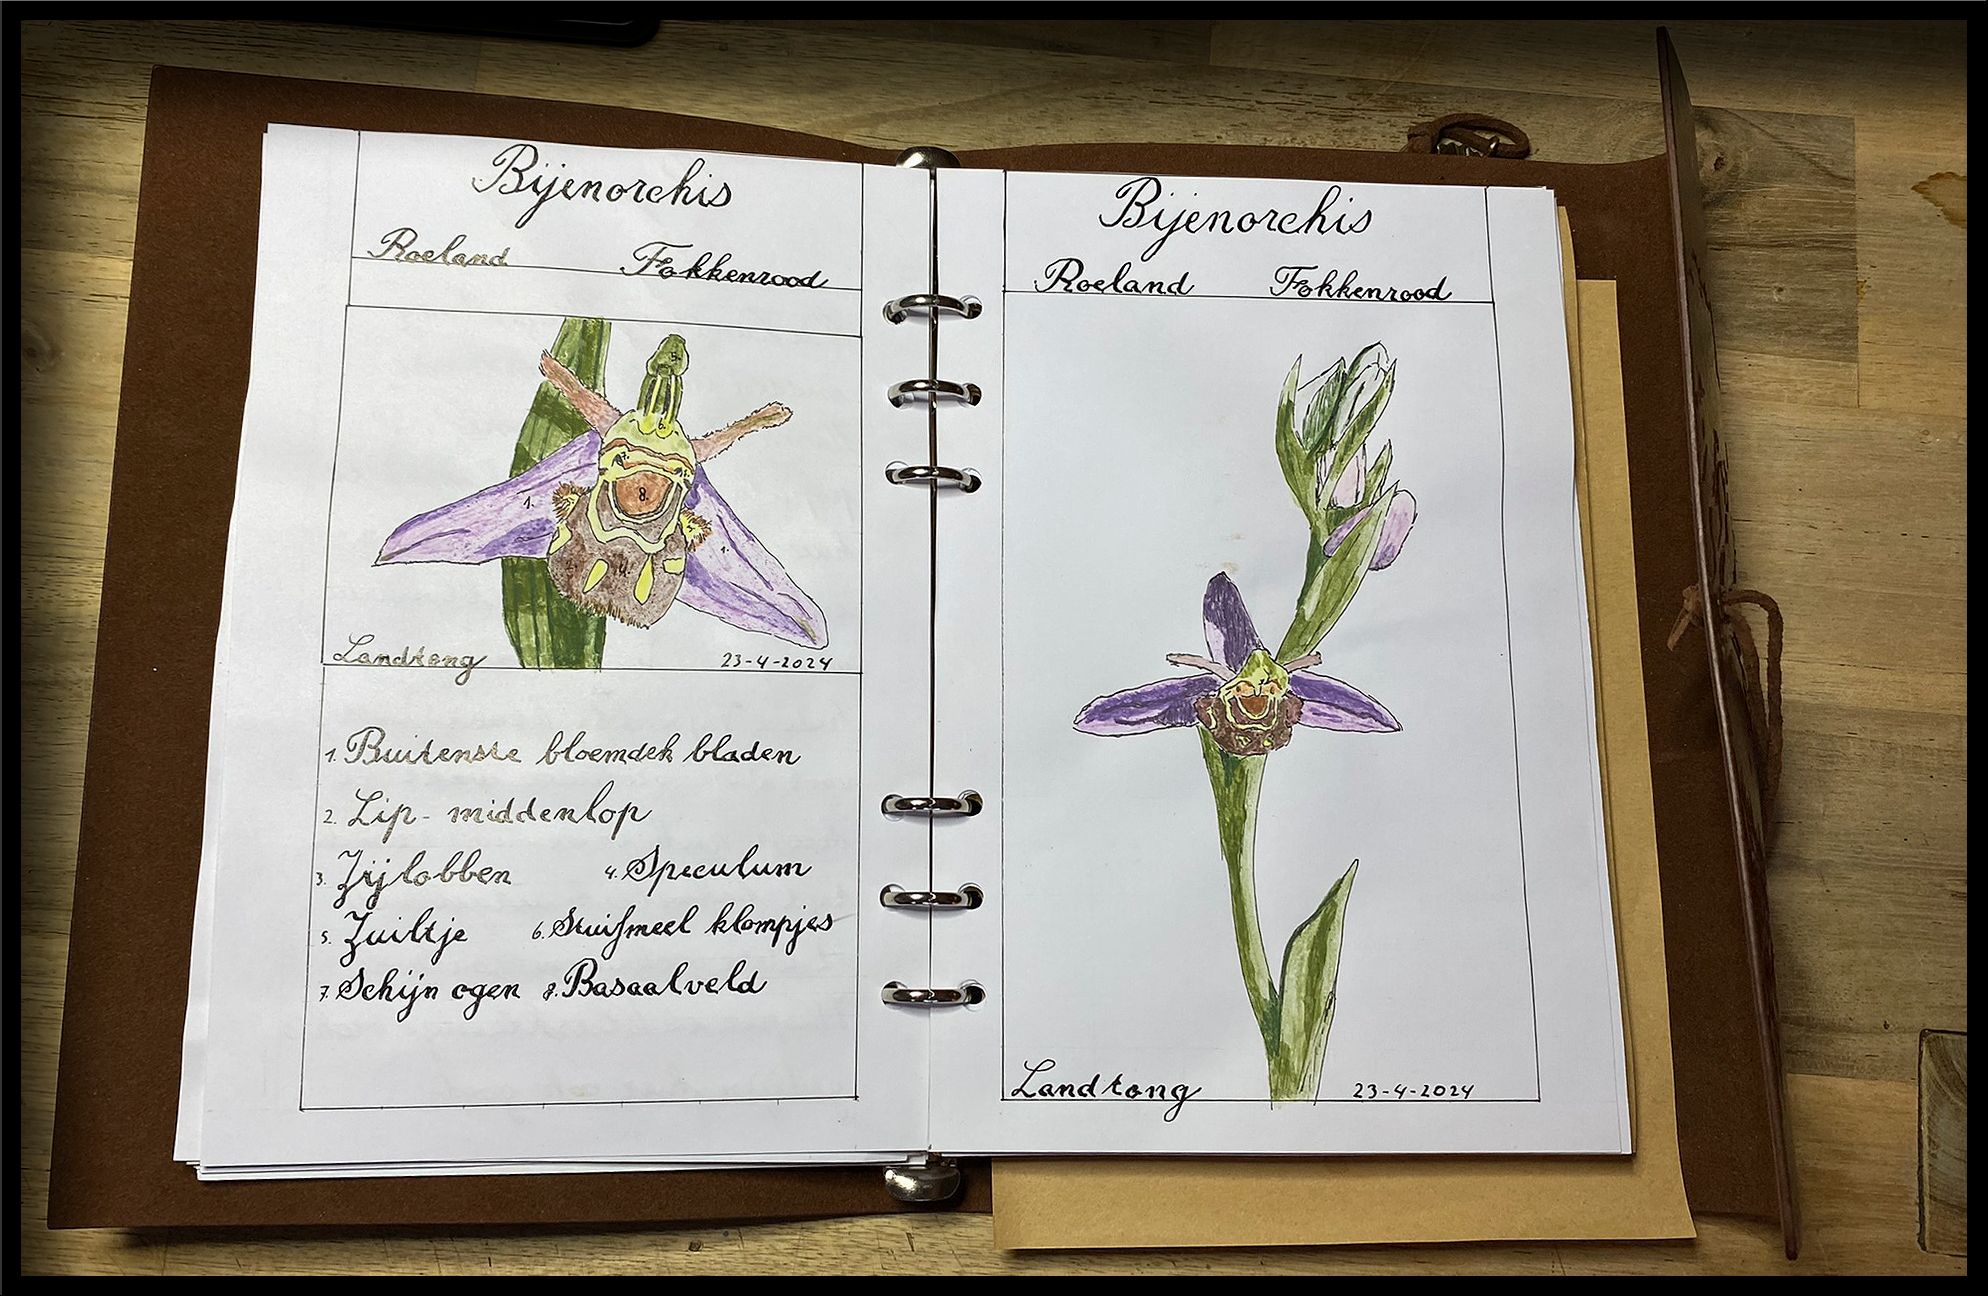 Bijenorchis
Roeland Fokkenrood
5.
6.
7.
8.
1.
1.
4.
Landtong 23-4-2024
1. Buitenste bloemdek bladen
2. Lip- middenlop
3. Zijlobben 4. Speculum
5. Zuiltje 6. Stuifmeel klompjes
7. Schijn ogen 8. Basaalveld
Bijenorchis
Roeland Fokkenrood
Landtong 23-4-2024